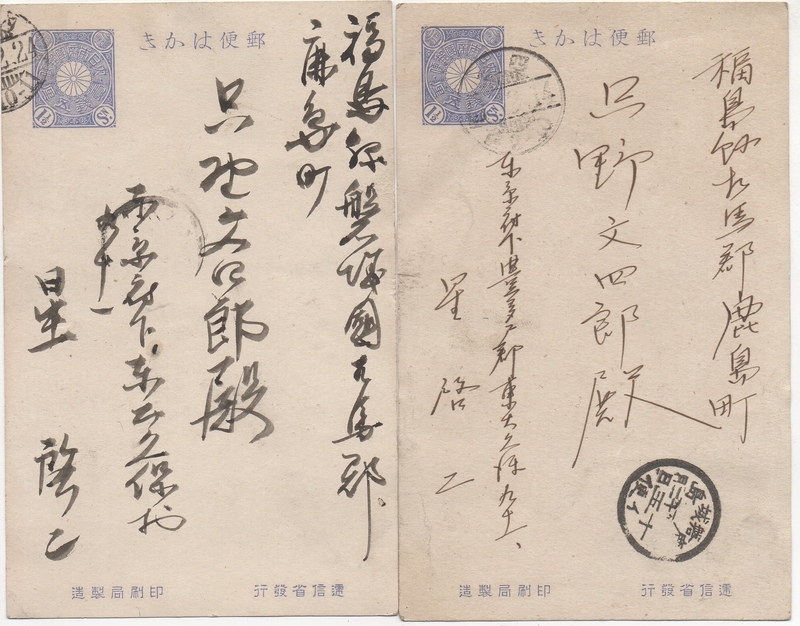 郵便はかき
福島縣磐城國相馬郡
鹿島町
只野文四郎殿
東京府下東大久保村
九十一
星啓二
逓信省發行
印刷局製造
郵便はかき
福島縣相馬郡鹿島町
只野文四郎殿
東京府下豊多摩郡東大久保九十一
星啓二
逓信省發行
印刷局製造